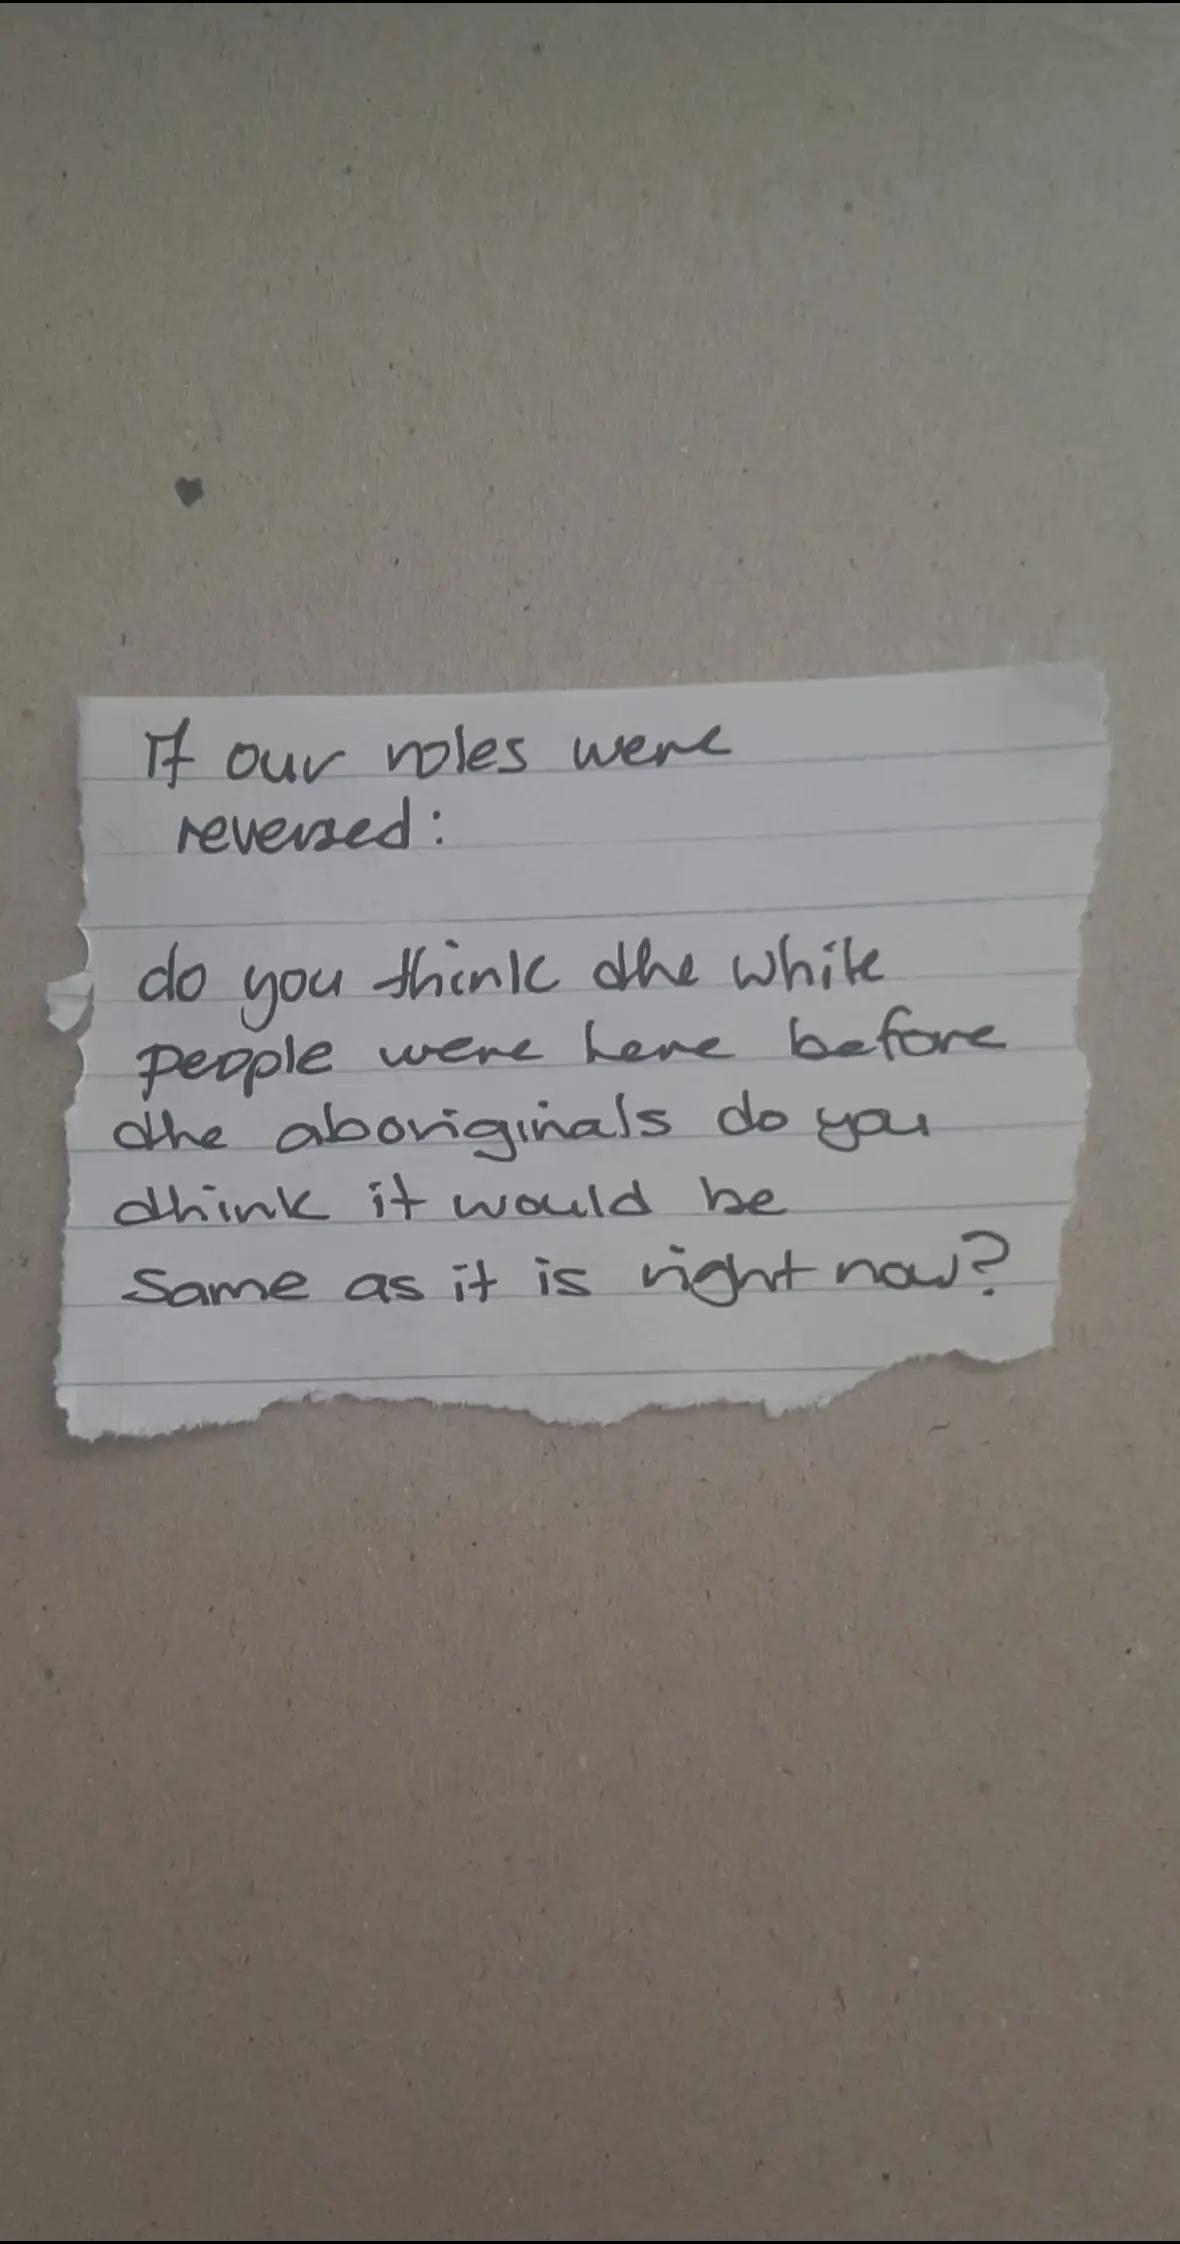 If our roles were
reversed:
do you think the white
people were here before
the aboriginals do you
think it would be
same as it is right now?